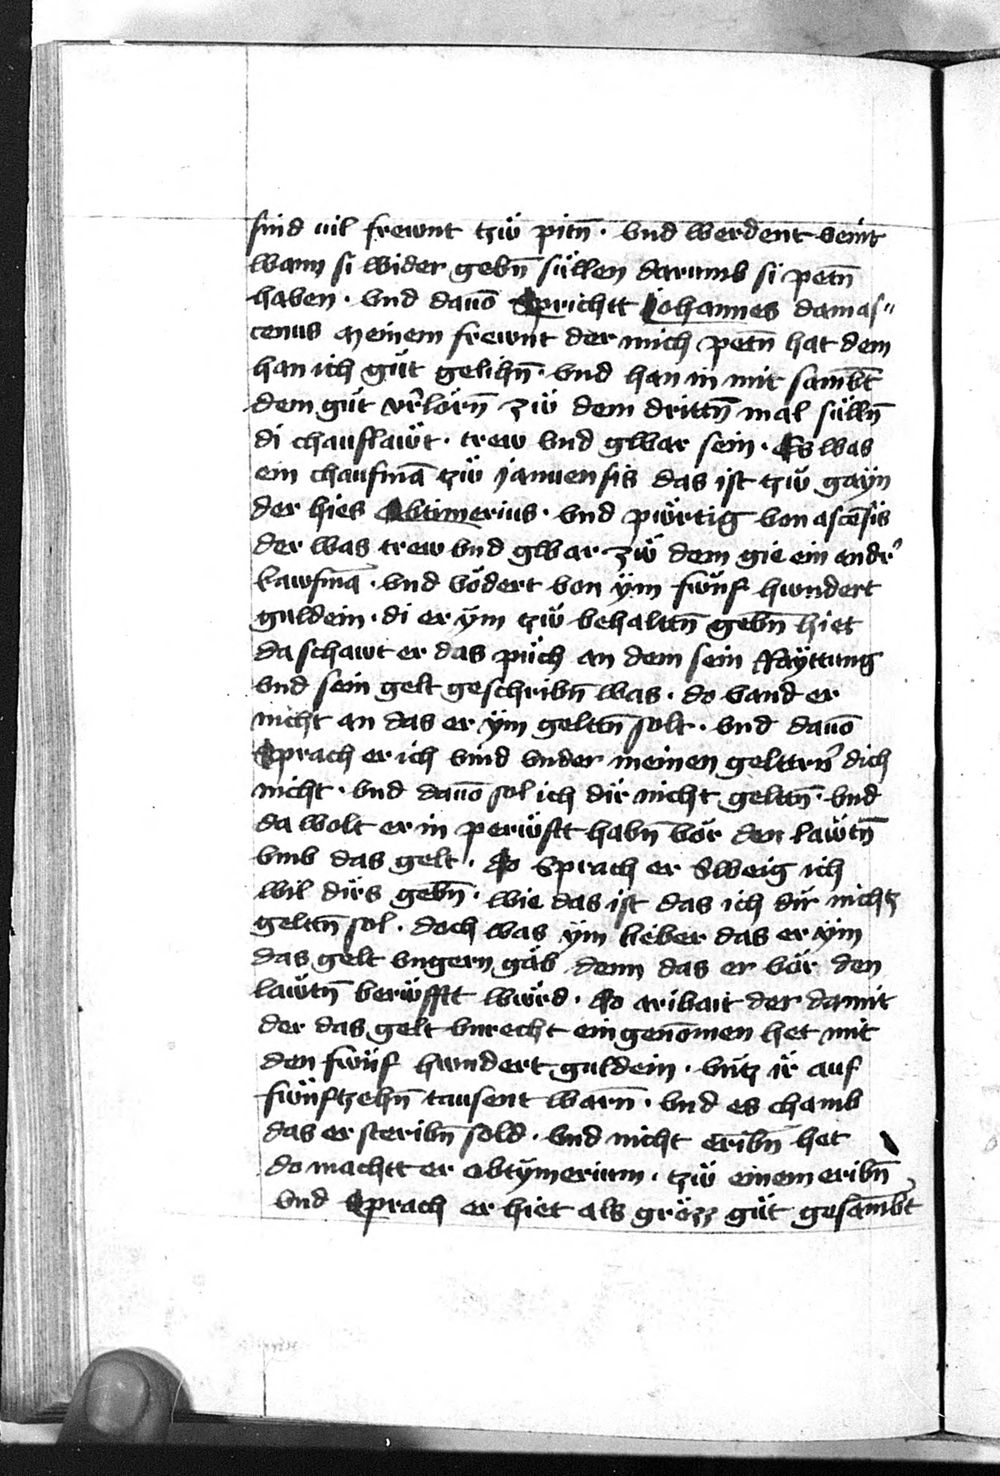 sind vil frewnt tzw̎ pitn̄ · vnd werdent veint
wann si wider gebn̄ süllen darumb si petn̄
haben · vnd dauō Sprichtt Johannes damas〃
cenus Meinem frewnt der mich petn̄ hat dem
han ich gůt gelihn̄ · vnd han in mit sambt̄
dem gůt v̓rlorn̄ Zw̎ dem drittn̄ mal sülln̄
di chauflaẃt · trew vnd gwar sein · Es was
ein chaufmā tzw̎ Januensis das ist tzw̎ gaÿn
der hies Obtimerius · vnd pẃrtig von ascēsis
der was trew vnd gwar Zw̎ dem gie ein andr̓
kawfmā · vnd vödert von ÿm fẃnf hwndert
guldein · di er ÿm tzw̎ behalttn̄ gebn̄ hiet
da schawt er das půch an dem sein Raÿttung
vnd sein gelt geschribn̄ was · do vand er
nicht an das er ÿm gelttn̄ solt · vnd dauō
Sprach er ich vind vnder meinen gelttrn̓ dich
nicht · vnd dauō sol ich dir nicht gelttn̄ · vnd
da wolt er in perẃftt habn̄ vör den laẃtn̄
vmb das gelt · do Sprach er Sweig ich
wil dirs gebn̄ · wie das ist das ich dir nichtz
gelttn̄ sol · doch was ÿm lieber das er ÿm
das gelt vngern gäb denn das er vör den
laẃtn̄ berẃfftt wůrd · do aribait der damit
der das gelt vnrecht eingenōmen het mit
den fẃnf hundert guldein · vntz ir auf
fẃnftzehn̄ tausent warn̄ · vnd es chamb
das er steribn̄ sold · vnd nicht eribn̄ het
do machtt er obtÿmerium · tzw̎ einem eribn̄
vnd Sprach er hiet als grözz gůt gesambt̄